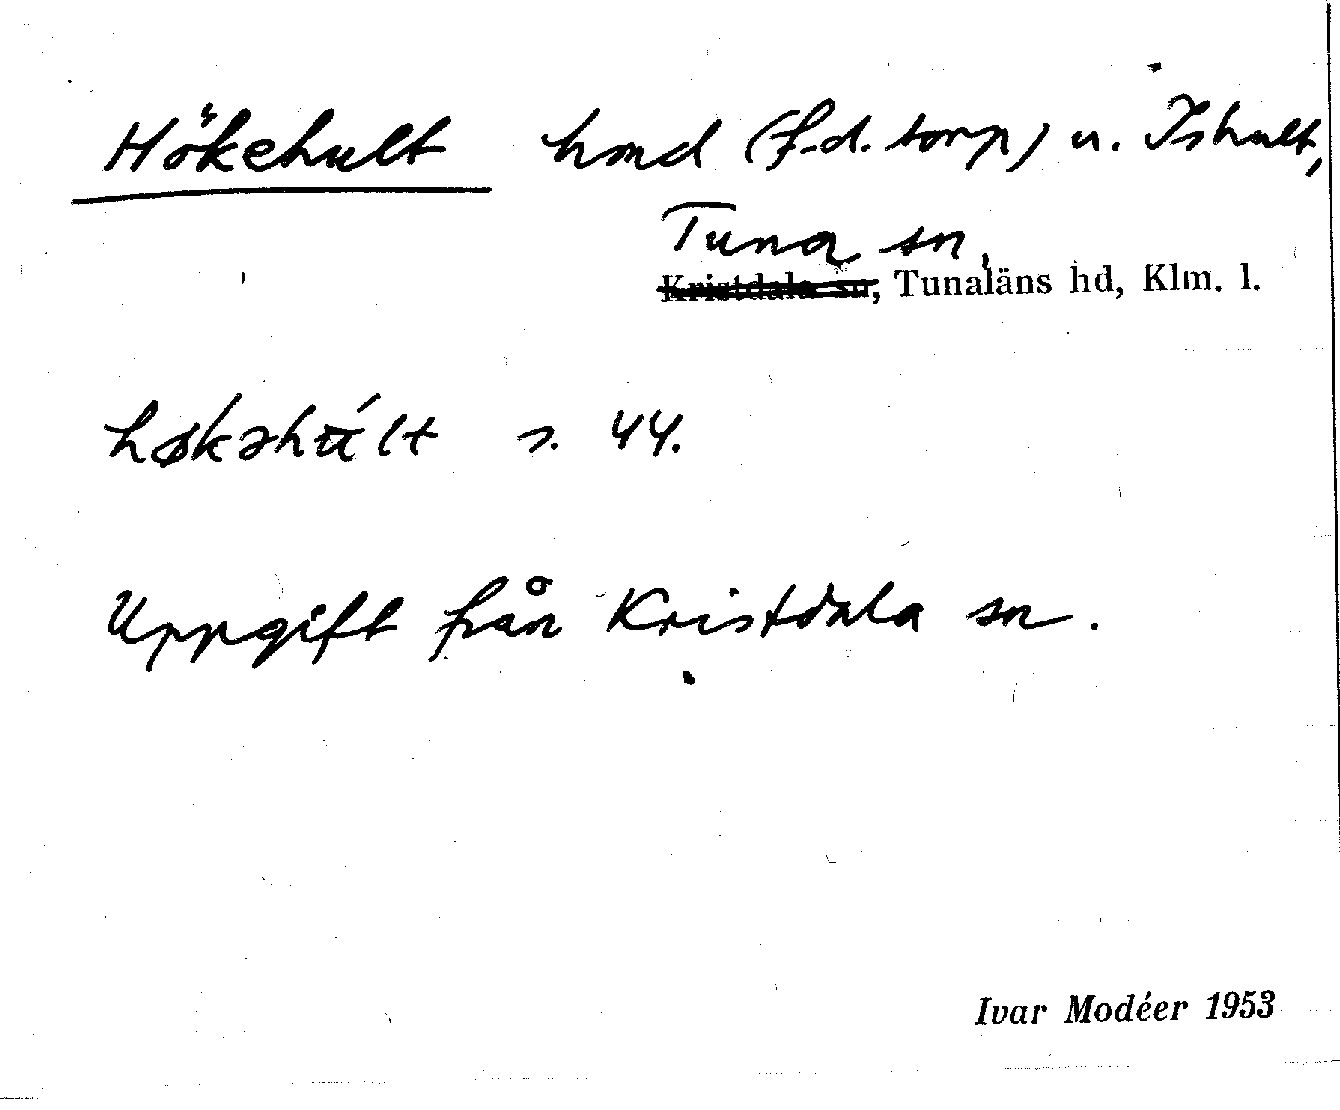 Hökehult hmd (f.d. torp) u. Ishult,
Tuna sn,
Kristdala sn, Tunaläns hd, Klm. l.
høkəhú̵lt s. 44.
Uppgift från Kristdala sn.
Ivar Modéer 1953